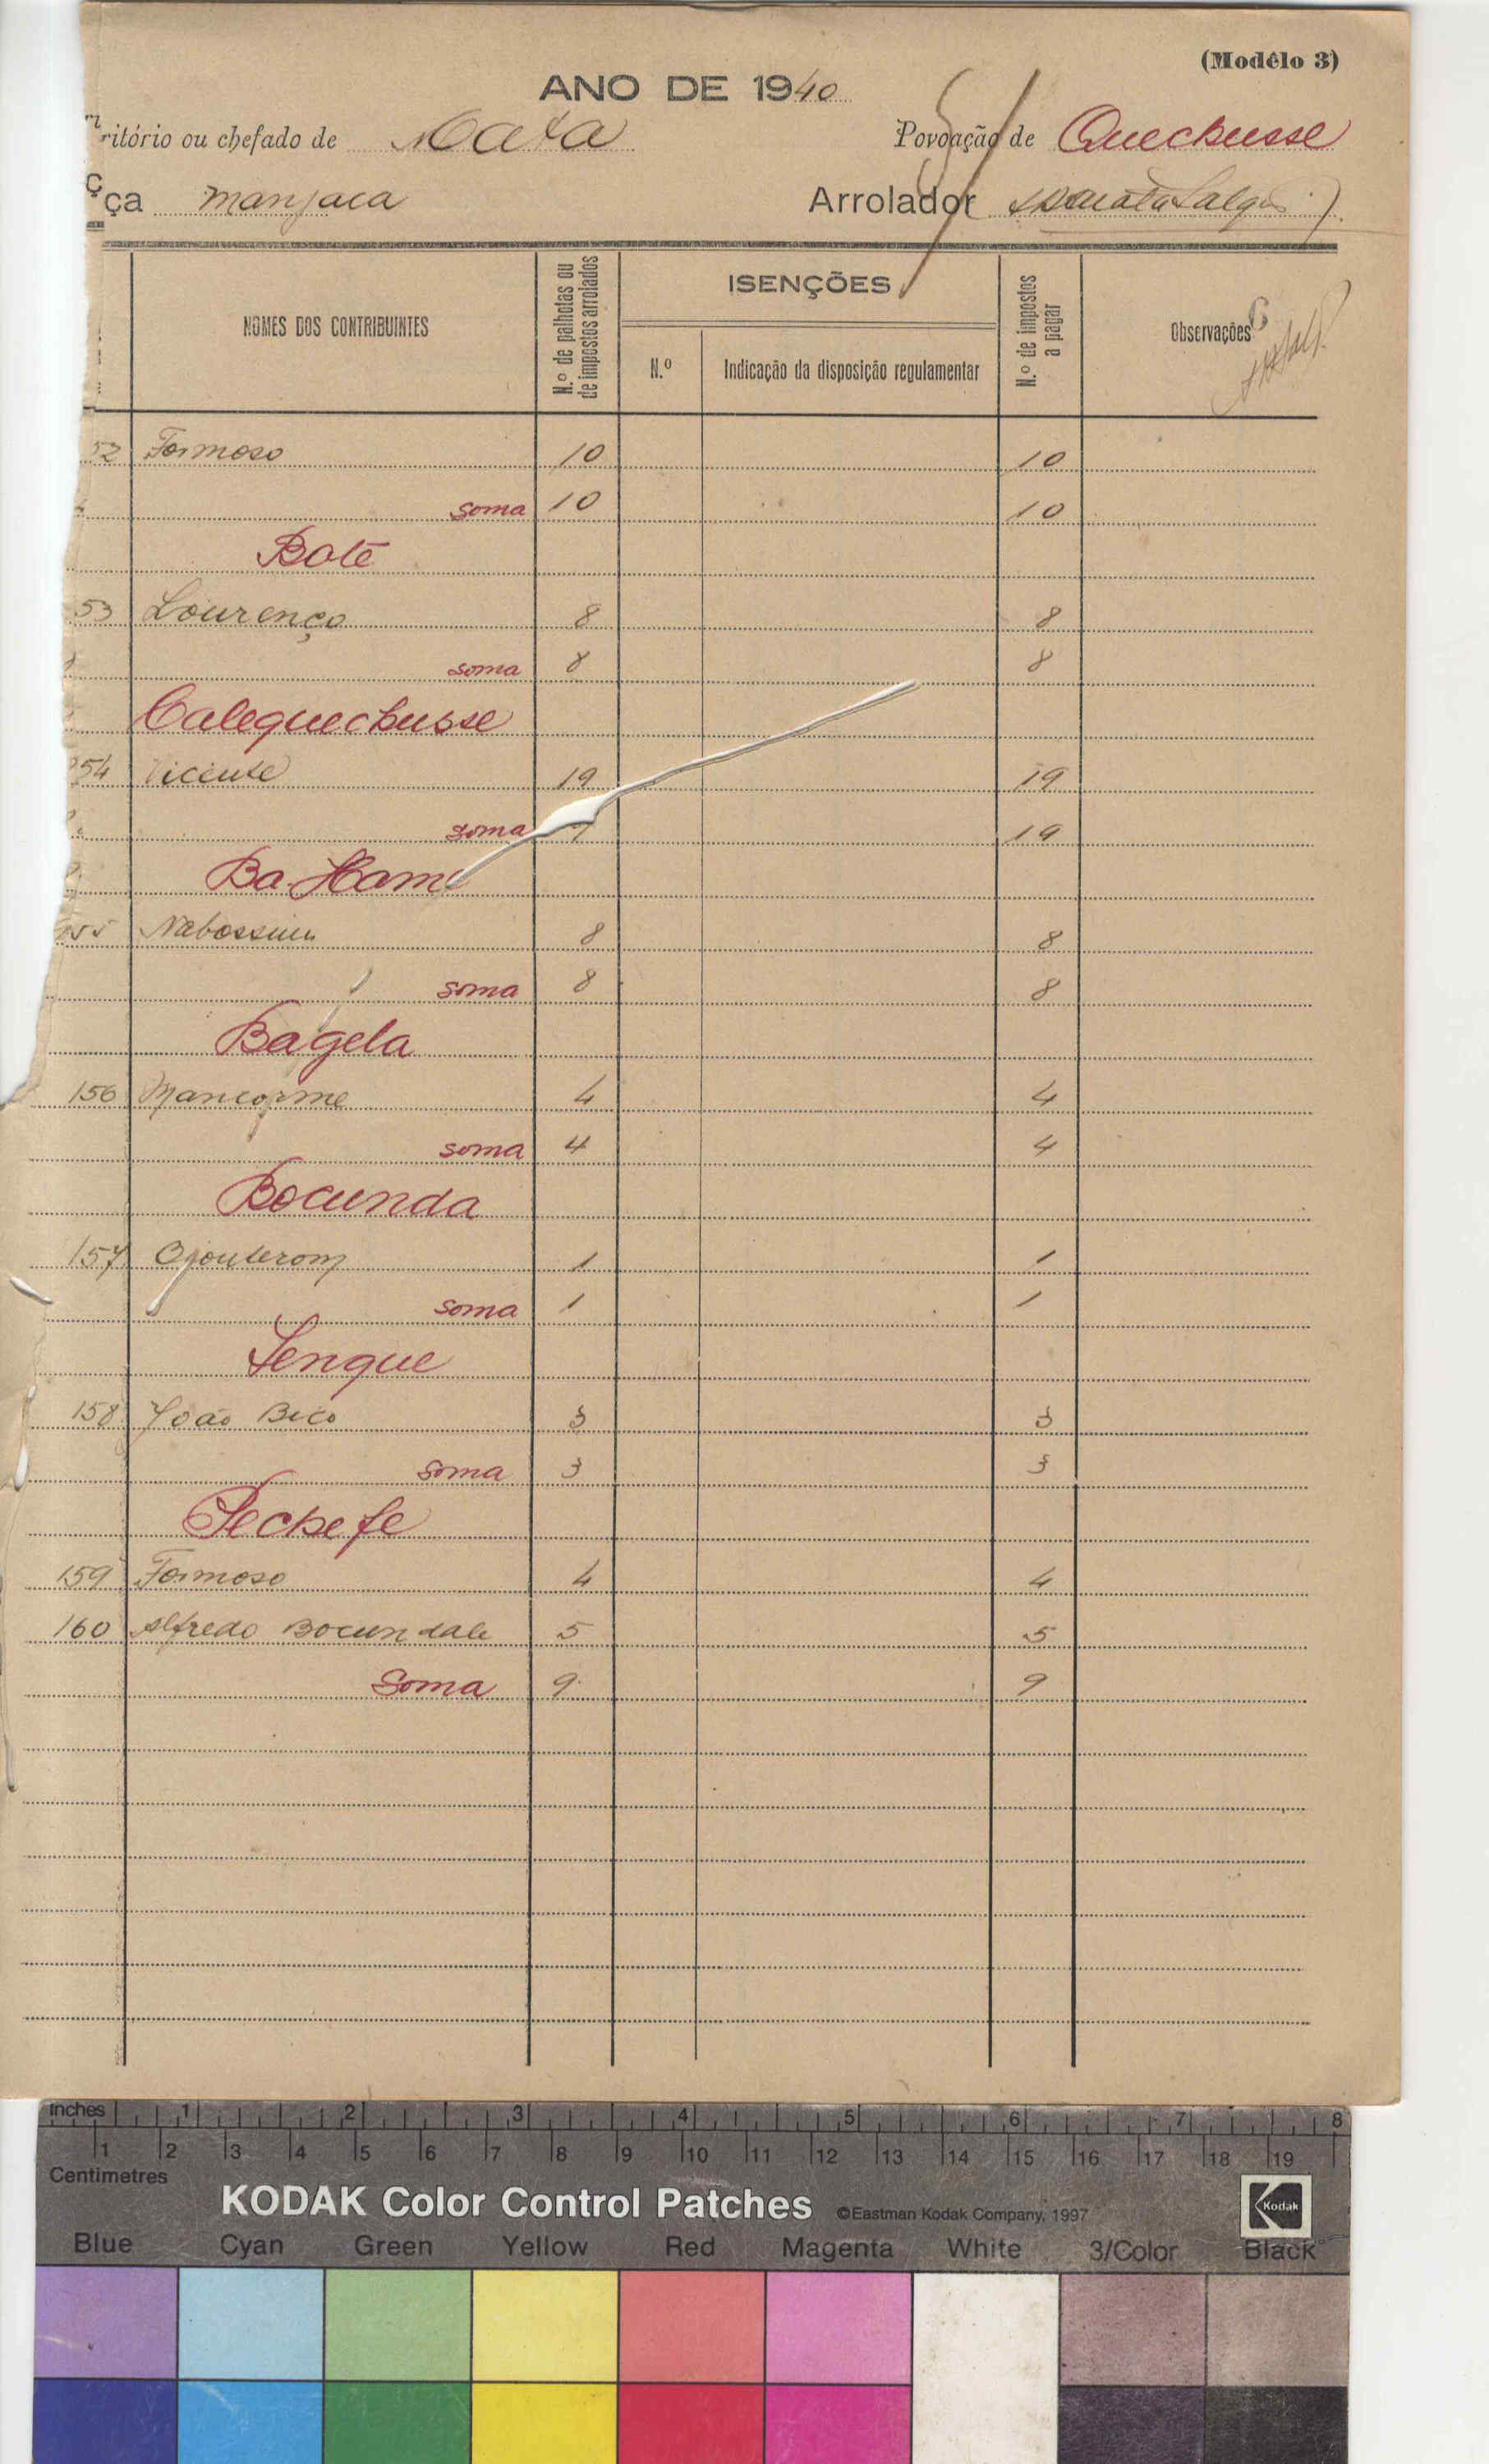 (Modêlo 3)
ANO DE 1940
ritório ou chefado de Cata Povoação de Quechusse
ça manjaca Arrolador
NOMES DOS CONTRIBUINTES
N.º de palhotas ou de impostos arrolados
ISENÇÕES
N.º
Indicação da disposição regulamentar
N.º de impostos a pagar
Observações
52 Formoso 10 10
soma 10 10
Botê
53 Lourenço 8 8
soma 8 8
Calequechusse
54 Vicente 19 19
soma 19
Ba-Ham
55 Nabossum 8 8
soma 8 8
Bagela
156 Mancorme 4 4
soma 4 4
Bocunda
157 1 1
soma 1 1
Lenque
158 João Bico 3 3
soma 3 3
Pechefe
159 Formoso 4 4
160 Alfredo Bocundale 5 5
Soma 9 9
Inches 1 2 3 4 5 6 7 8
1 2 3 4 5 6 7 8 9 10 11 12 13 14 15 16 17 18 19
Centimetres
KODAK Color Control Patches ©Eastman Kodak Company, 1997 Kodak
Blue Cyan Green Yellow Red Magenta White 3/Color Black